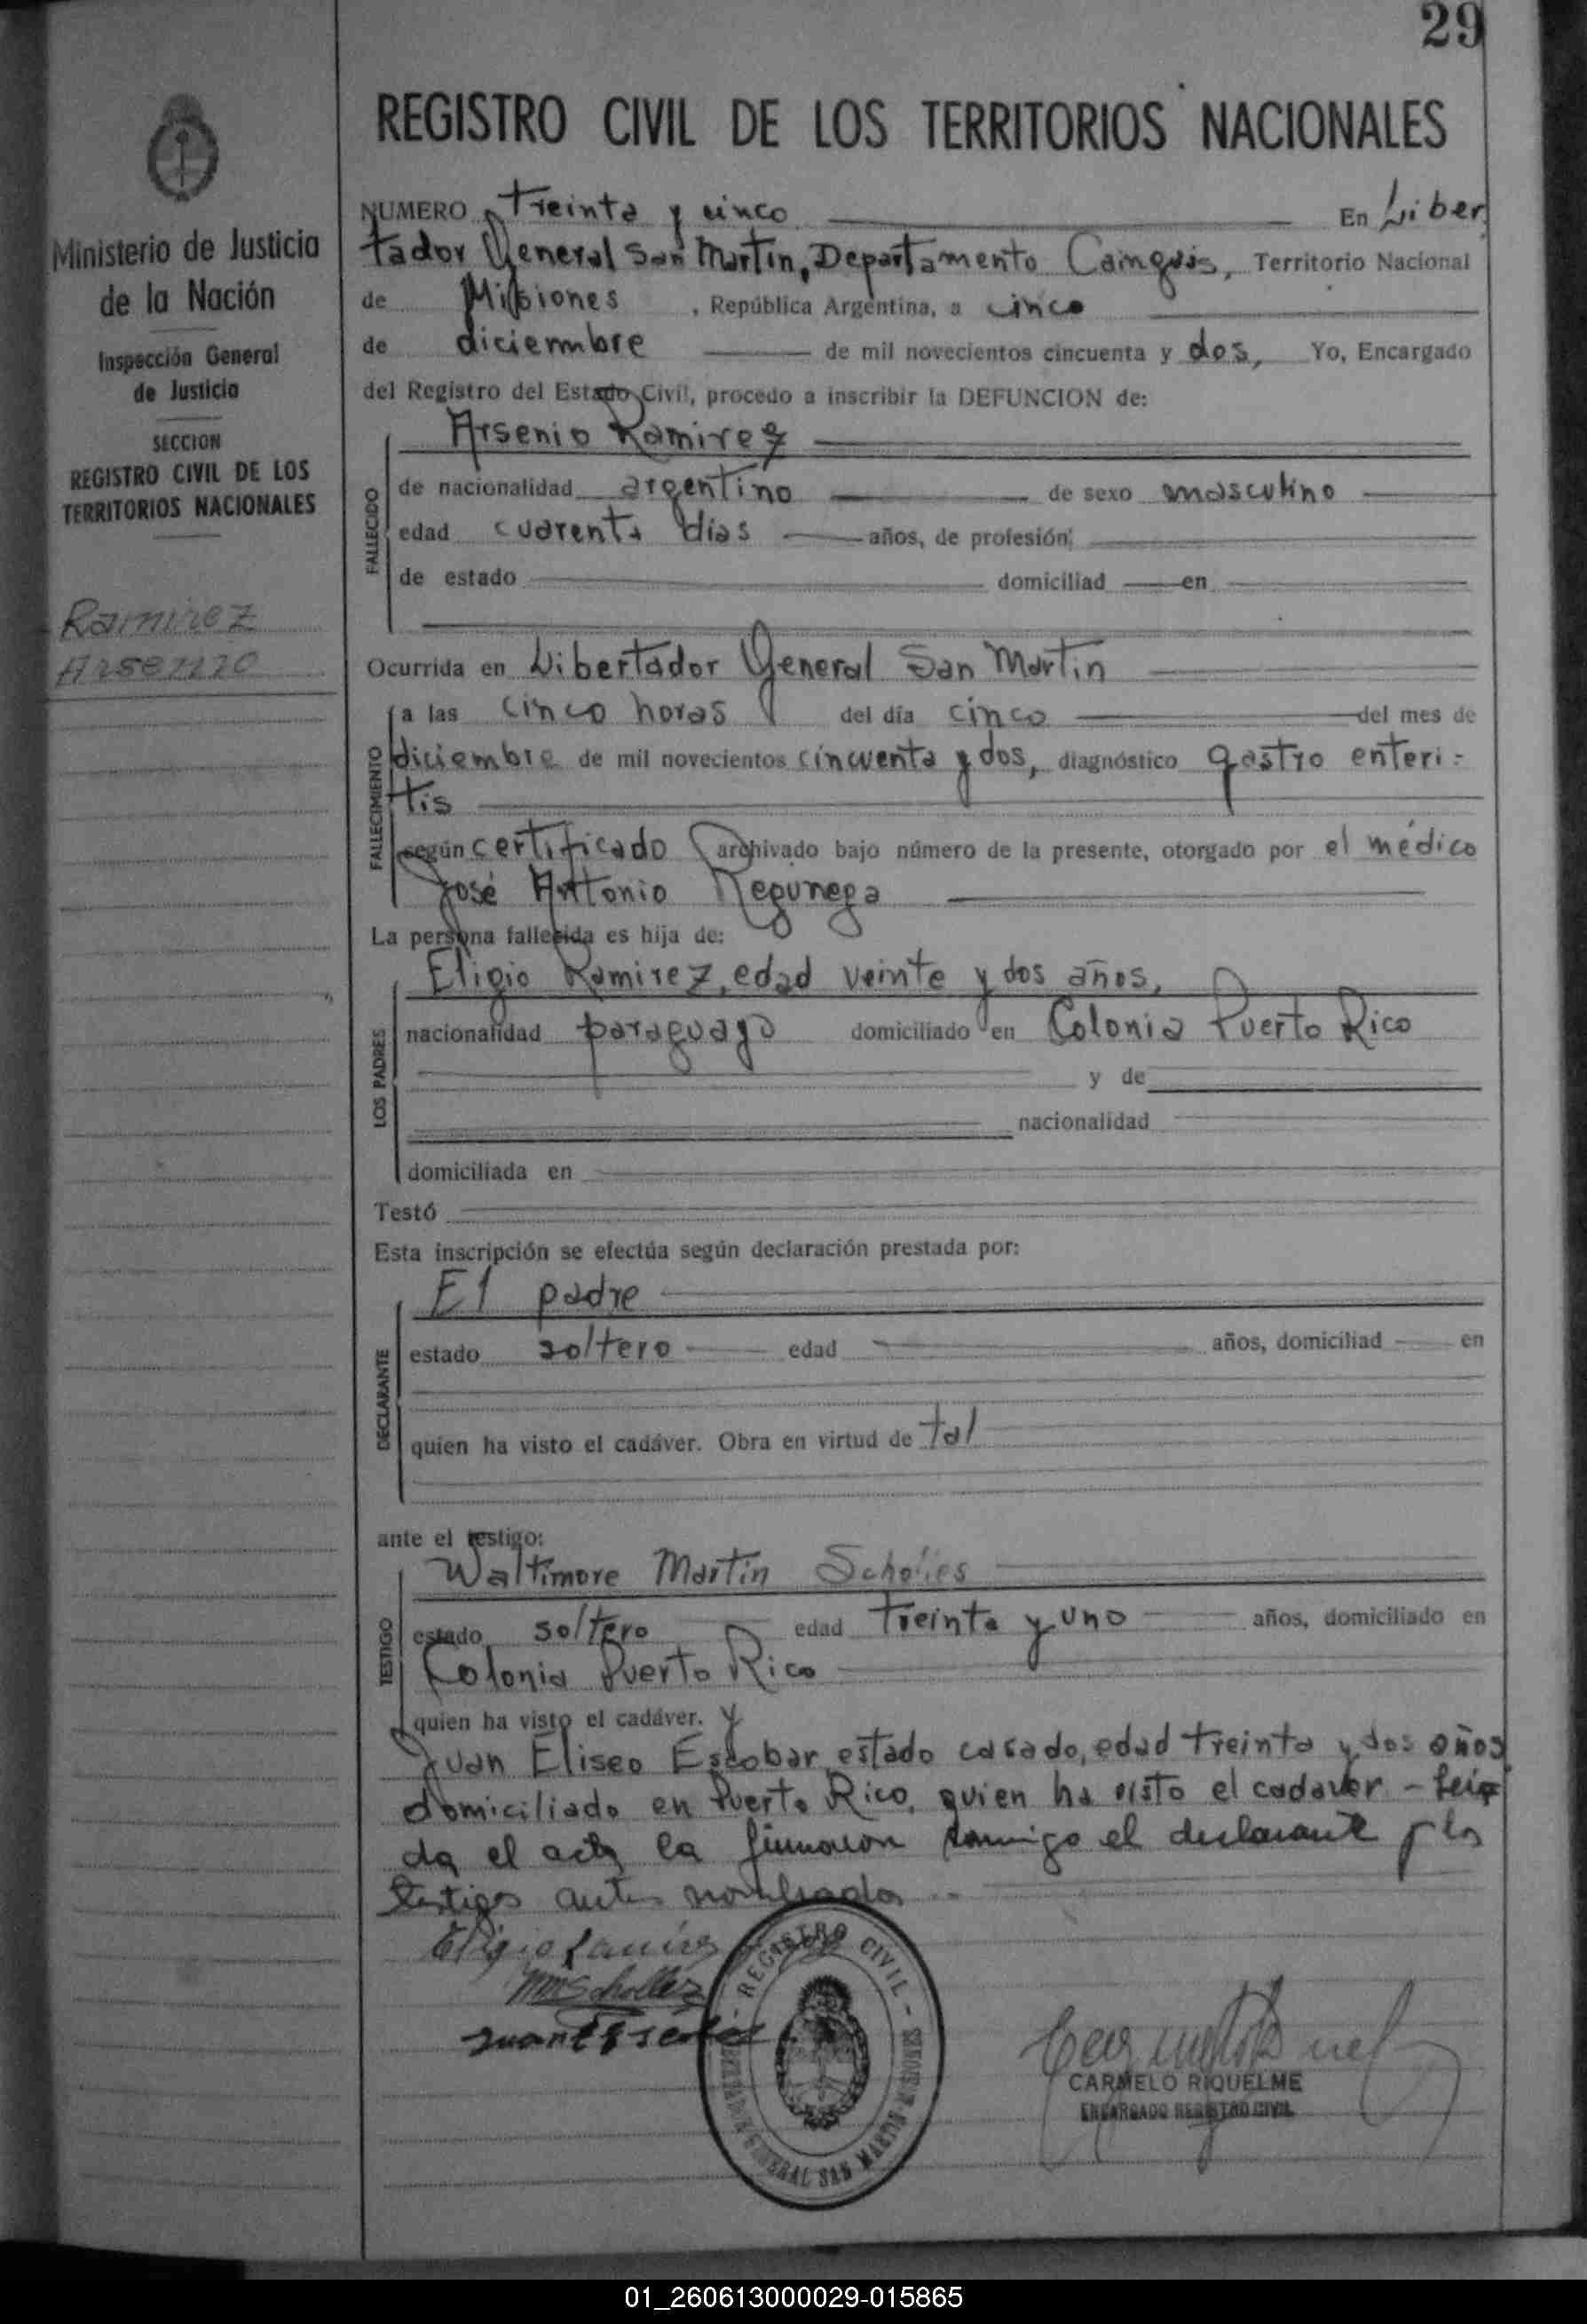 29
REGISTRO CIVIL DE LOS TERRITORIOS NACIONALES
Ministerio de Justicia
de la Nación
Inspección General
de Justicia
SECCION
REGISTRO CIVIL DE LOS
TERRITORIOS NACIONALES
Ramirez
Arsenio
NUMERO treinta y cinco En Liber
tador General San Martin, Departamento Cainguas, Territorio Nacional
de Misiones, República Argentina, a cinco
de diciembre de mil novecientos cincuenta y dos, Yo, Encargado
del Registro del Estado Civil, procedo a inscribir la DEFUNCION de:
Arsenio Ramirez
FALLECIDO
de nacionalidad argentino de sexo masculino
edad cuarenta dias años, de profesión
de estado domiciliad en
Ocurrida en Libertador General San Martin
FALLECIMIENTO
a las cinco horas del día cinco del mes de
diciembre de mil novecientos cincuenta y dos, diagnóstico gastro enteri-
tis
según certificado archivado bajo número de la presente, otorgado por el médico
José Antonio
La persona fallecida es hija de:
LOS PADRES
Eligio Ramirez, edad veinte y dos años,
nacionalidad paraguayo domiciliado en Colonia Puerto Rico
y de
nacionalidad
domiciliada en
Testó
Esta inscripción se efectúa según declaración prestada por:
DECLARANTE
El padre
estado soltero edad años, domiciliad en
quien ha visto el cadáver. Obra en virtud de tal
ante el testigo:
TESTIGO
Waltimore Martin
estado soltero edad treinta y uno años, domiciliado en
Colonia Puerto Rico
quien ha visto el cadáver. y
Juan Eliseo Escobar, estado casado, edad treinta y dos años
domiciliado en Puerto Rico, quien ha visto el cadaver - Lei
da el acta la firmaron conmigo el declarante y los
testigos antes nombrados
Eligio Ramirez
REGISTRO CIVIL
LIBERTADOR GENERAL SAN MARTIN
CARMELO RIQUELME
ENCARGADO REGISTRO CIVIL
01_260613000029-015865